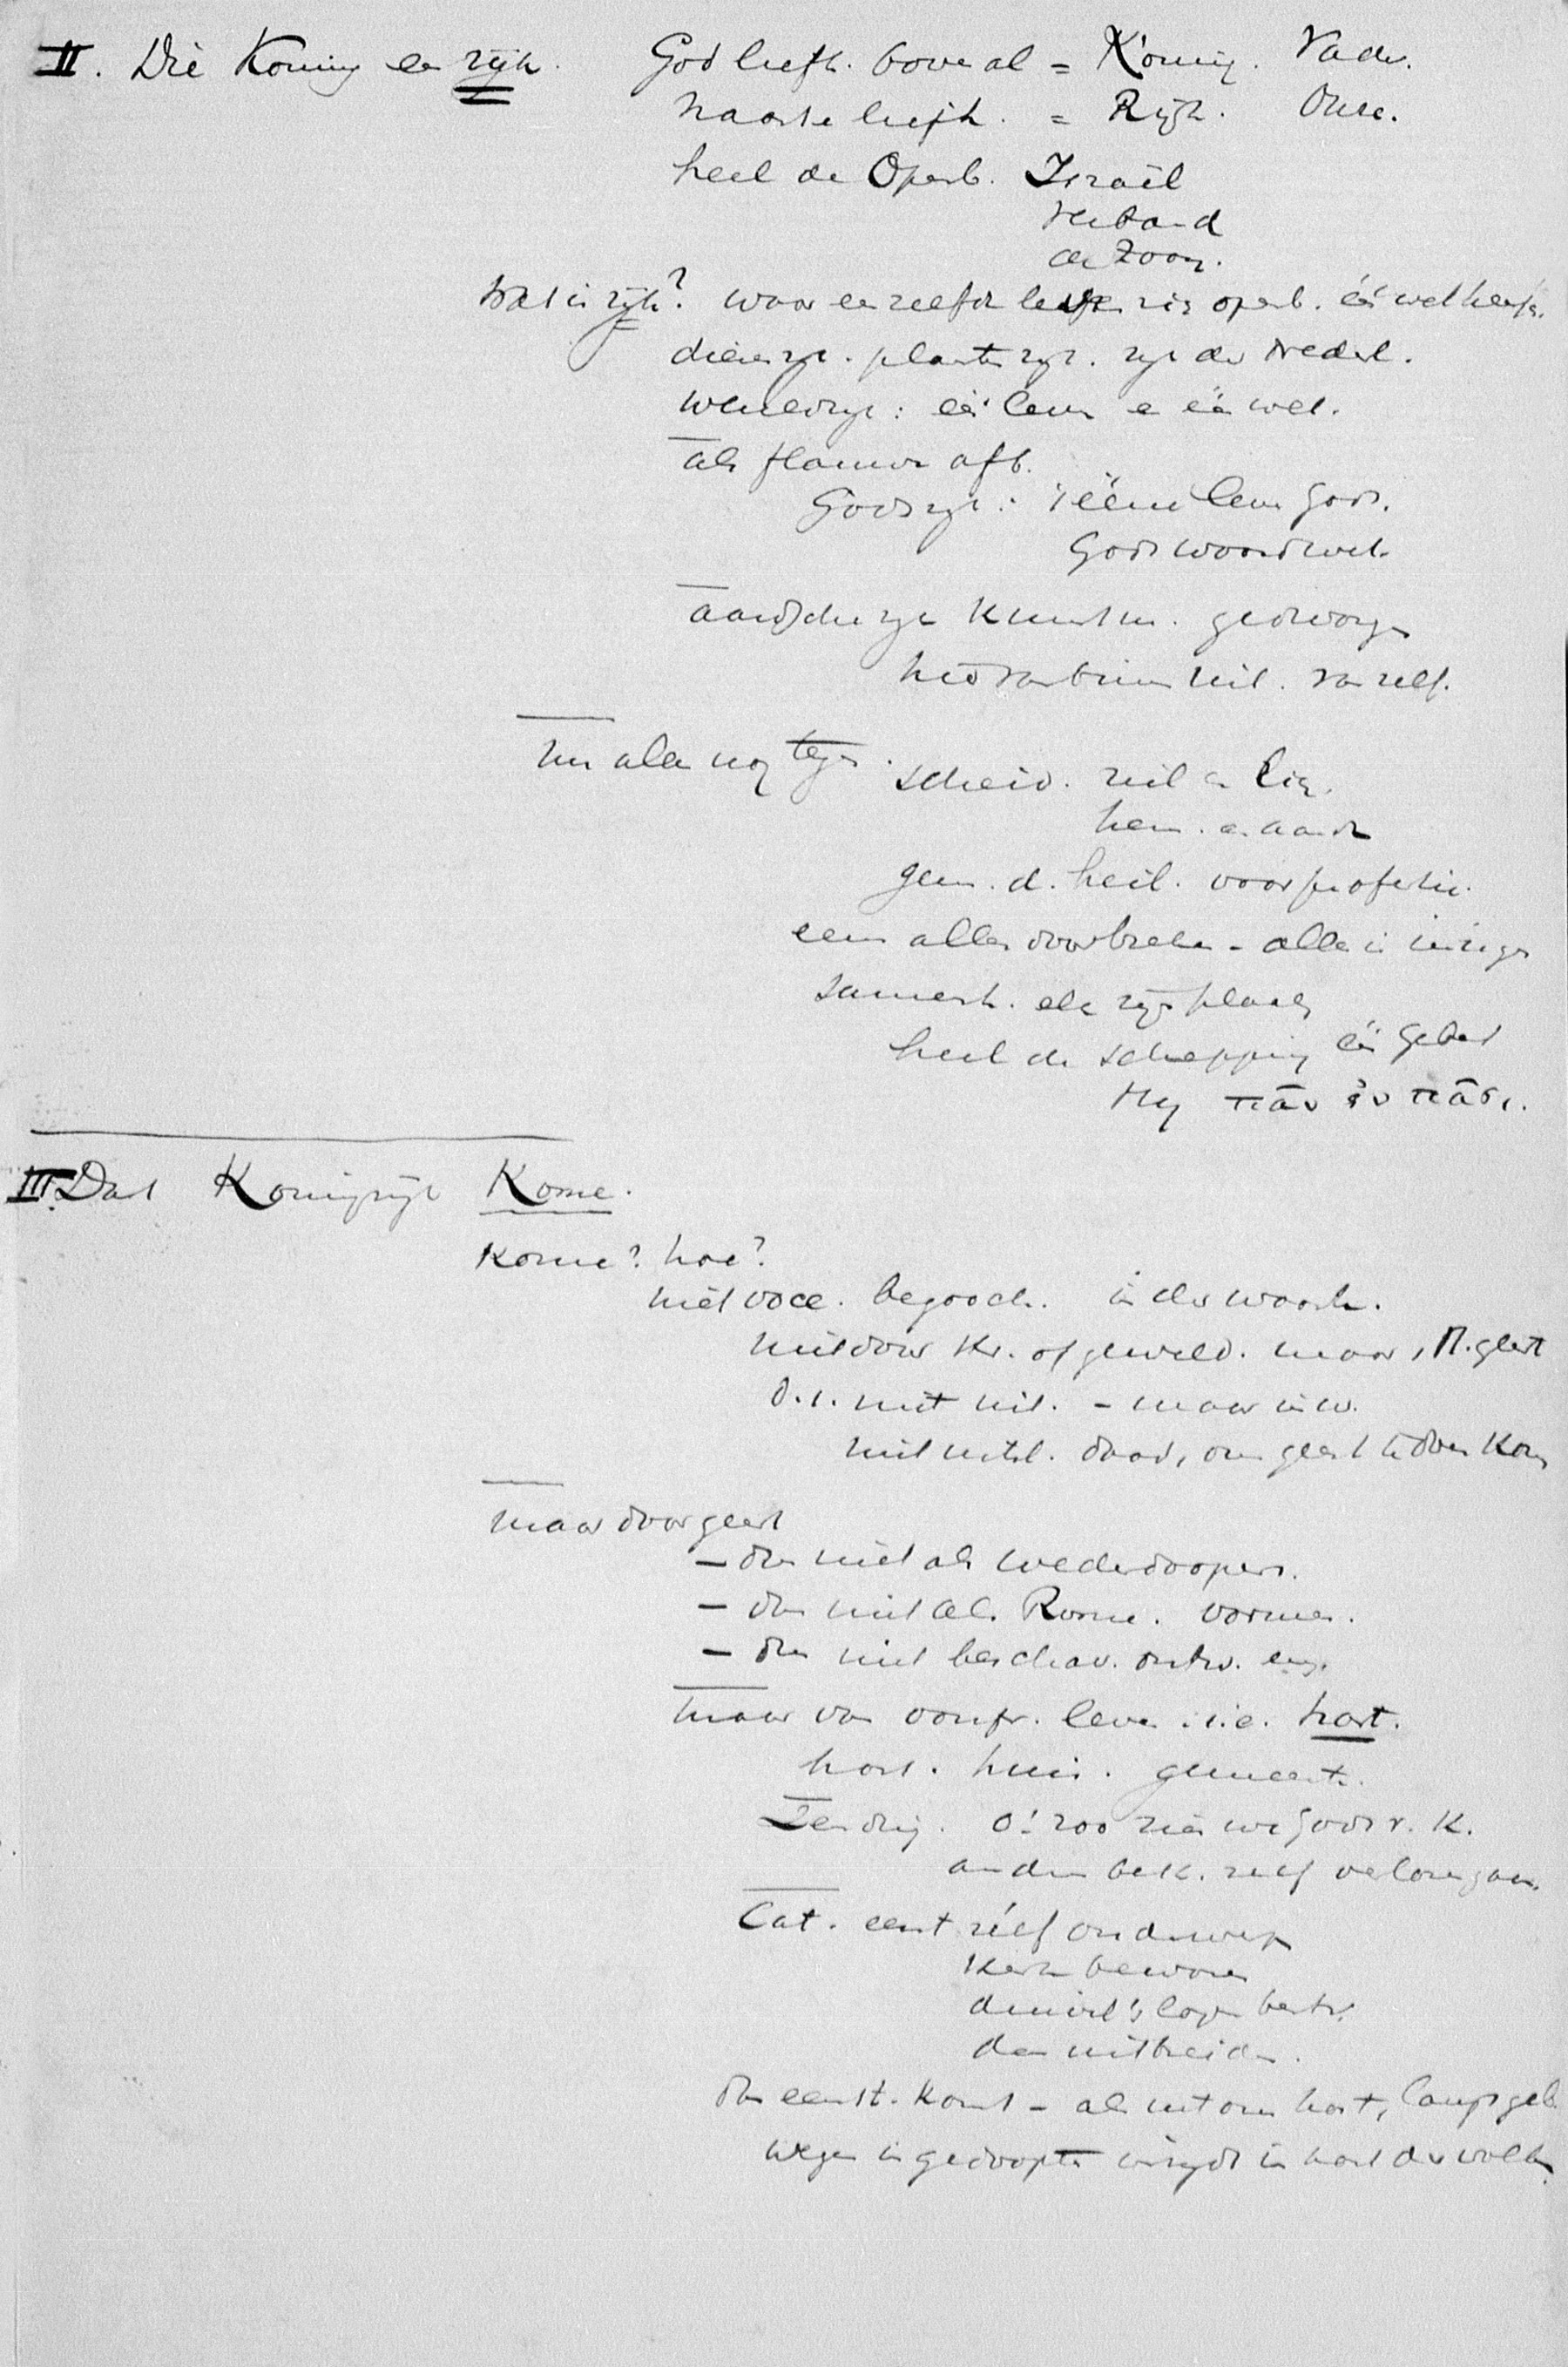 II. Die Koning een rijk. God liefh. boven al = Koning. Vader.
naaste liefh. = Rijk. Onze.
heel de Openb. Israël
Verband
de Zoon.
Wat is rijk? waar een zelfde leven zich openb. één wet heersch.
dierenryk. plantenryk. ryk der Nederl.
Wereldryk: één leven en één wet.
als flaauw afb.
Godsryk: 't ééne leven Gods.
Gods woord wet.
aardsche ryk kunstm. gedwongen
hier van binnen uit. van zelf.
nu alles nog tegen. scheid. ziel en lich.
hem. en aarde
gem. d. heil. voorprofetie.
eens alles doorbreken - alles in innigen
samenh. elk zyn plaats
heel de schepping één Gebed
Hy πᾶν ἐν πᾶσι.
III. Dat Koningryk Kome.
Kome? hoe?
niet begooch. in der waarh.
niet door kr. of geweld. maar, M. geest
d.i. niet uit. - maar inw.
niet uitw. daad, onze geest te doen kom
maar door geest
- dus niet als wederdoopers.
- dus niet als Rome. vormen.
- dus niet beschav. ontw. enz.
maar van oorspr. leven. i.e. hart.
hart. huis. gemeente.
Zending. O! zoo zien we Gods v. K.
anderen bek. zelf verloren gaan.
Cat. eerst zelf onderwerpen
Kerk bewaren
duivel's logen bestr.
dan uitbreiden.
dus eerst. komt - als uit ons hart, langs geb.
wegen in gedoopte inryd in hart der volken